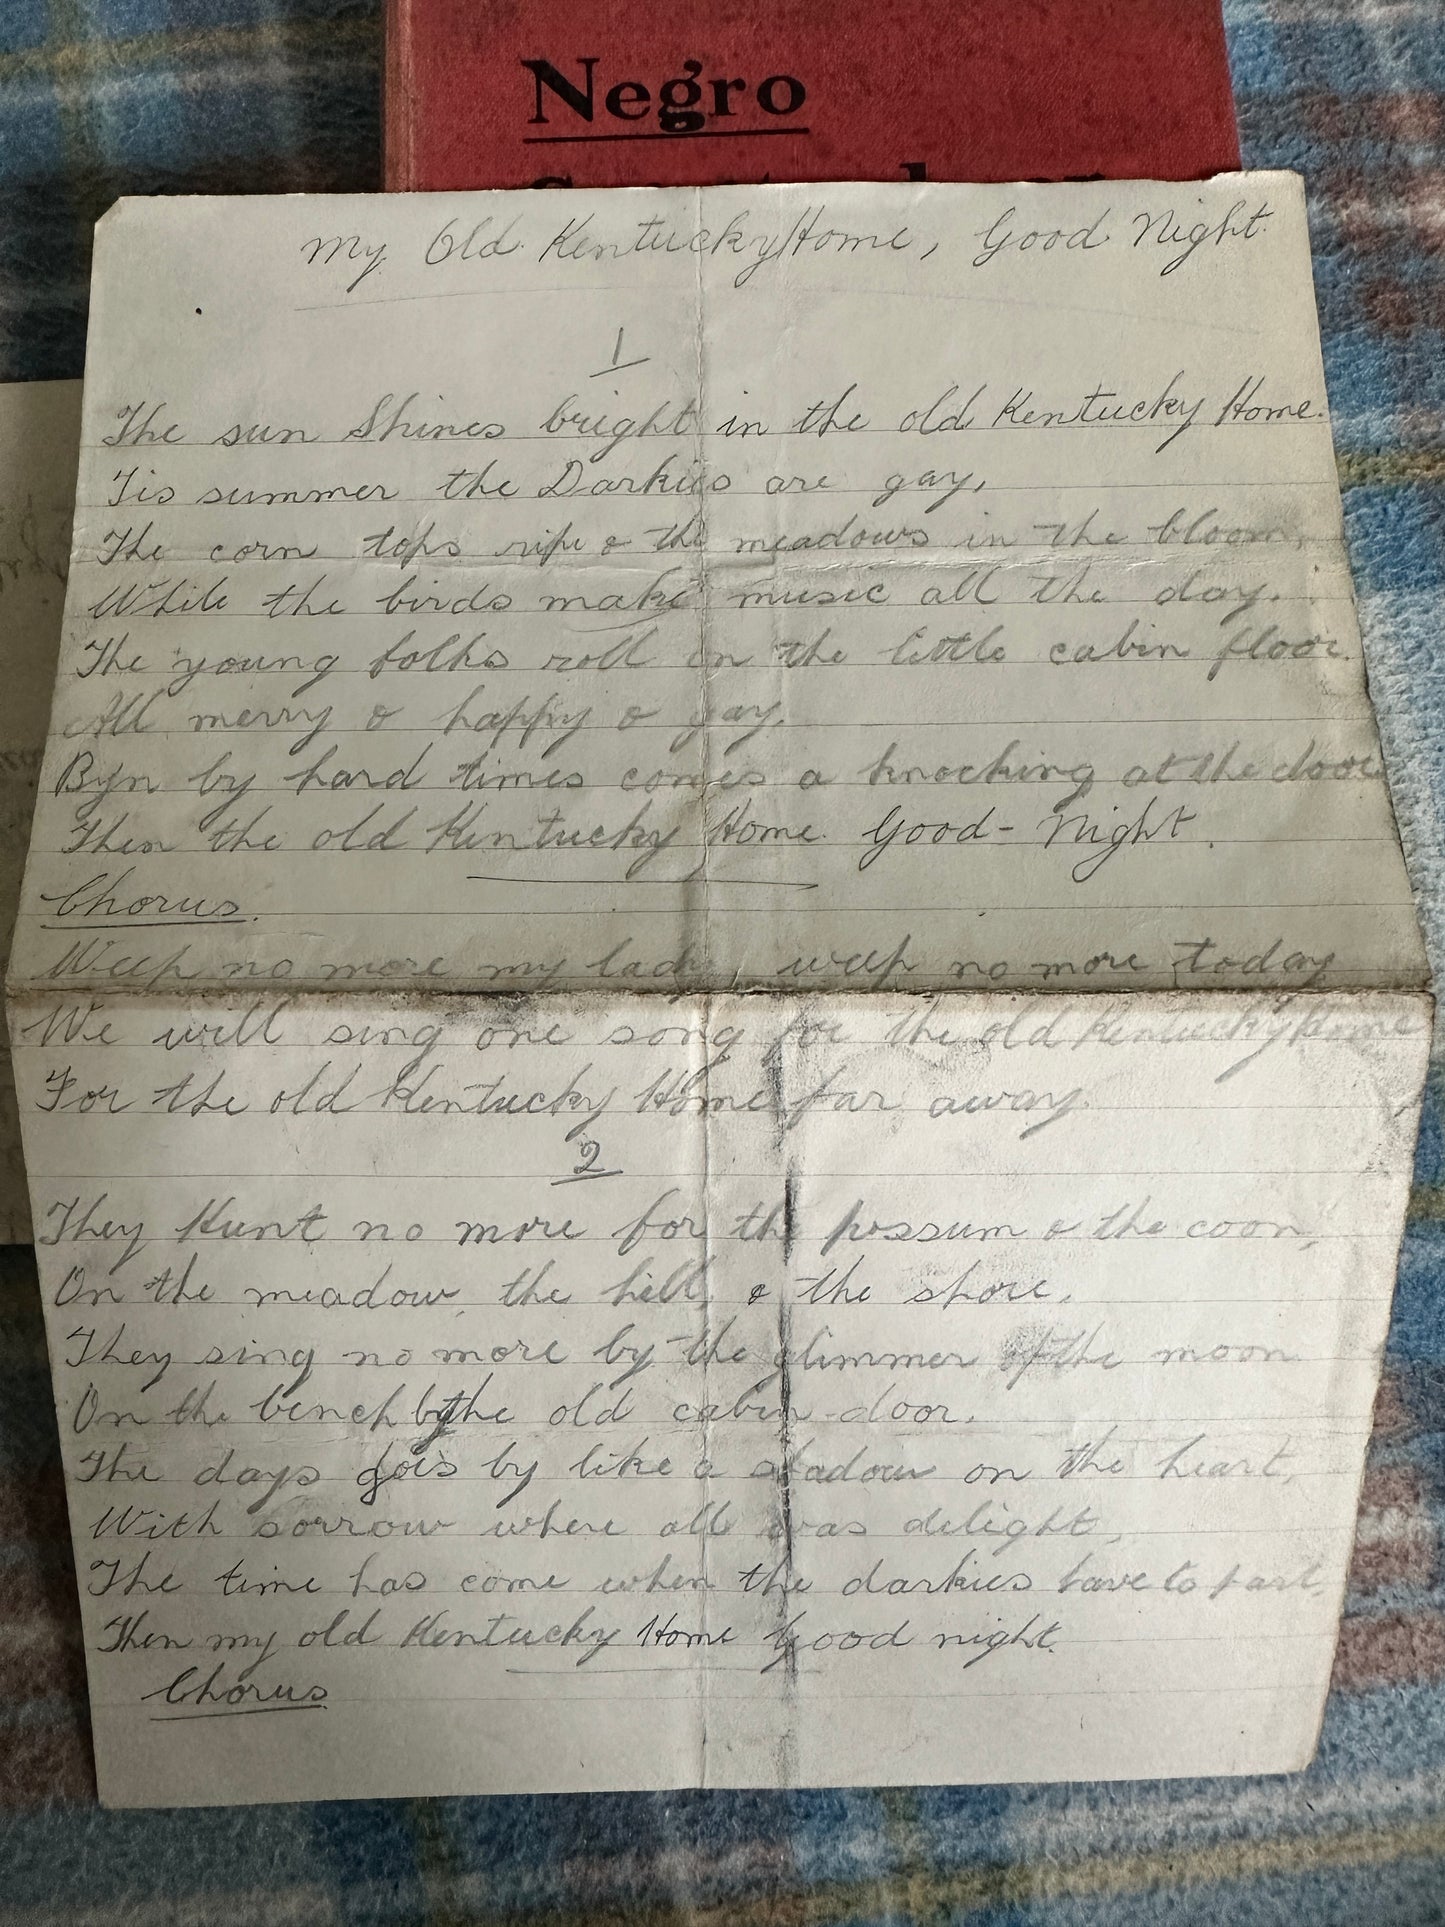 Negro
My Old Kentucky Home, Good Night.
1
The sun Shines bright in the old Kentucky Home.
Tis summer the Darkies are gay,
The corn tops ripe & the meadows in the bloom,
While the birds make music all the day.
The young folks roll on the little cabin floor.
All merry & happy & gay.
Byn by hard times comes a knocking at the door
Then the old Kentucky Home Good-Night.
Chorus.
Weep no more my lady, weep no more today
We will sing one song for the old Kentucky Home
For the old Kentucky Home far away
2
They Hunt no more for the possum & the coon,
On the meadow, the hill, & the shore,
They sing no more by the glimmer of the moon
On the bench by the old cabin-door.
The days gois by like a shadow on the heart,
With sorrow where all was delight,
The time has come when the darkies have to part,
Then my old Kentucky Home Good night.
Chorus